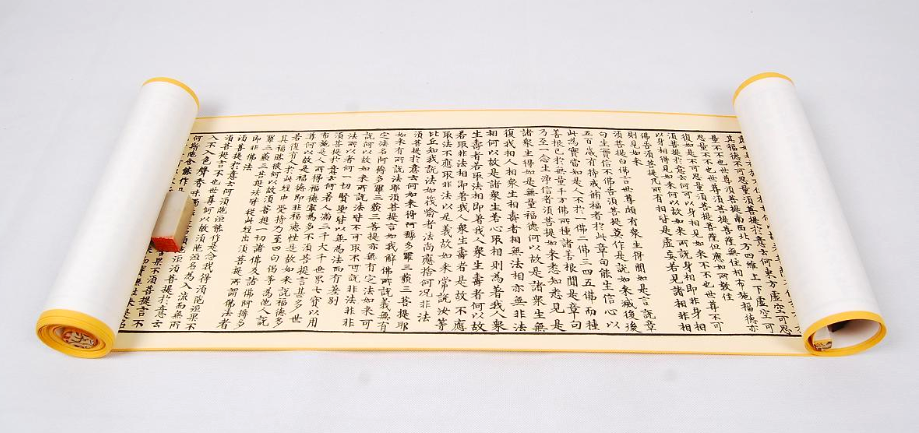 其福德不可思量須菩提於意云何東方虛空可思
量不不也世尊須菩提南西北方四維上下虛空可
思量不不也世尊須菩提菩薩無住相布施福德亦
復如是不可思量須菩提菩薩但應如所教住
須菩提於意云何可以身相見如來不不也世尊不可
以身相得見如來何以故如來所說身相即非身相
佛告須菩提凡所有相皆是虛妄若見諸相非相
則見如來
須菩提白佛言世尊頗有眾生得聞如是言說章
句生實信不佛告須菩提莫作是說如來滅後後
五百歲有持戒修福者於此章句能生信心以
此為實當知是人不於一佛二佛三四五佛而種
善根已於無量千萬佛所種諸善根聞是章句
乃至一念生淨信者須菩提如來悉知悉見是
諸眾生得如是無量福德何以故是諸眾生無
復我相人相眾生相壽者相無法相亦無非法
相何以故是諸眾生若心取相則為著我人眾
生壽者若取法相即著我人眾生壽者何以故
若取非法相即著我人眾生壽者是故不應
取法不應取非法以是義故如來常說汝等
比丘知我說法如筏喻者法尚應捨何況非法
須菩提於意云何如來得阿耨多羅三藐三菩提耶
如來有所說法耶須菩提言如我解佛所說義無有
定法名阿耨多羅三藐三菩提亦無有定法如來可
說何以故如來所說法皆不可取不可說非法非非
法所以者何一切賢聖皆以無為法而有差別
須菩提於意云何若人滿三千大千世界七寶以用
布施是人所得福德寧為多不須菩提言甚多世
尊何以故是福德即非福德性是故如來說福德多
若復有人於此經中受持乃至四句偈等為他人說
其福勝彼何以故須菩提一切諸佛及諸佛阿耨多
羅三藐三菩提法皆從此經出須菩提所謂佛法者
即非佛法
須菩提於意云何須陀洹能作是念我得須陀洹果不
須菩提言不也世尊何以故須陀洹名為入流而無所
入不入色聲香味
何斯陀含能作